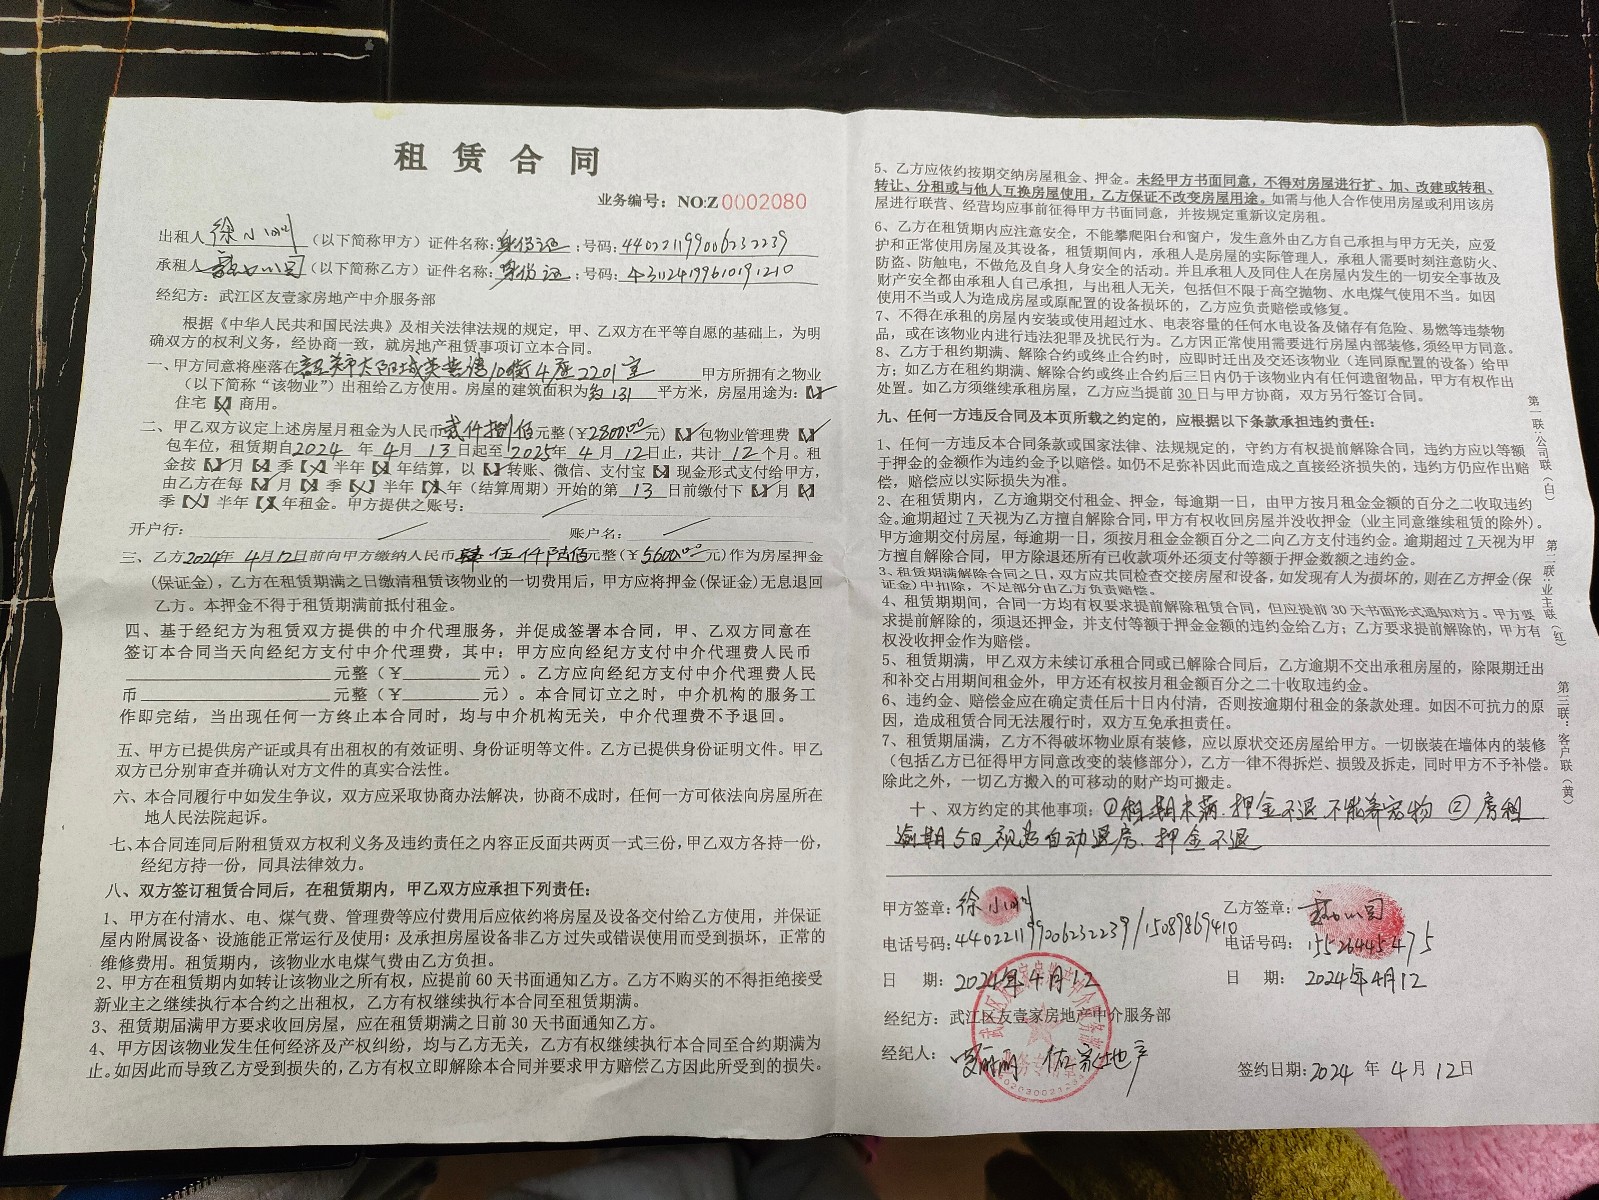 租赁合同
业务编号：NO:Z0002080
出租人 徐小 （以下简称甲方）证件名称：身份证；号码：440221199006232239
承租人 （以下简称乙方）证件名称：身份证；号码：431124199610191210
经纪方：武江区友壹家房地产中介服务部
根据《中华人民共和国民法典》及相关法律法规的规定，甲、乙双方在平等自愿的基础上，为明
确双方的权利义务，经协商一致，就房地产租赁事项订立本合同。
一、甲方同意将座落在韶关市太阳城英 10街4座2201室 甲方所拥有之物业
（以下简称“该物业”）出租给乙方使用。房屋的建筑面积为约131平方米，房屋用途为：【✓】
住宅【】商用。
二、甲乙双方议定上述房屋月租金为人民币贰仟捌佰元整(￥2800.00元)【】包物业管理费【】
包车位，租赁期自2024年4月13日起至2025年4月12日止，共计12个月。租
金按【】月【】季【】半年【】年结算，以【】转账、微信、支付宝【】现金形式支付给甲方，
由乙方在每【】月【】季【】半年【】年（结算周期）开始的第13日前缴付下【】月【】
季【】半年【】年租金。甲方提供之账号：
开户行： 账户名：
三、乙方2024年4月12日前向甲方缴纳人民币 伍仟陆佰元整(￥5600.00元)作为房屋押金
(保证金)，乙方在租赁期满之日缴清租赁该物业的一切费用后，甲方应将押金(保证金)无息退回
乙方。本押金不得于租赁期满前抵付租金。
四、基于经纪方为租赁双方提供的中介代理服务，并促成签署本合同，甲、乙双方同意在
签订本合同当天向经纪方支付中介代理费，其中：甲方应向经纪方支付中介代理费人民币
元整（￥ 元）。乙方应向经纪方支付中介代理费人民
币 元整（￥ 元）。本合同订立之时，中介机构的服务工
作即完结，当出现任何一方终止本合同时，均与中介机构无关，中介代理费不予退回。
五、甲方已提供房产证或具有出租权的有效证明、身份证明等文件。乙方已提供身份证明文件。甲乙
双方已分别审查并确认对方文件的真实合法性。
六、本合同履行中如发生争议，双方应采取协商办法解决，协商不成时，任何一方可依法向房屋所在
地人民法院起诉。
七、本合同连同后附租赁双方权利义务及违约责任之内容正反面共两页一式三份，甲乙双方各持一份，
经纪方持一份，同具法律效力。
八、双方签订租赁合同后，在租赁期内，甲乙双方应承担下列责任：
1、甲方在付清水、电、煤气费、管理费等应付费用后应依约将房屋及设备交付给乙方使用，并保证
屋内附属设备、设施能正常运行及使用；及承担房屋设备非乙方过失或错误使用而受到损坏，正常的
维修费用。租赁期内，该物业水电煤气费由乙方负担。
2、甲方在租赁期内如转让该物业之所有权，应提前60天书面通知乙方。乙方不购买的不得拒绝接受
新业主之继续执行本合约之出租权，乙方有权继续执行本合同至租赁期满。
3、租赁期届满甲方要求收回房屋，应在租赁期满之日前30天书面通知乙方。
4、甲方因该物业发生任何经济及产权纠纷，均与乙方无关，乙方有权继续执行本合同至合约期满为
止。如因此而导致乙方受到损失的，乙方有权立即解除本合同并要求甲方赔偿乙方因此所受到的损失。
5、乙方应依约按期交纳房屋租金、押金。未经甲方书面同意，不得对房屋进行扩、加、改建或转租、
转让、分租或与他人互换房屋使用，乙方保证不改变房屋用途。如需与他人合作使用房屋或利用该房
屋进行联营、经营均应事前征得甲方书面同意，并按规定重新议定房租。
6、乙方在租赁期内应注意安全，不能攀爬阳台和窗户，发生意外由乙方自己承担与甲方无关，应爱
护和正常使用房屋及其设备，租赁期间内，承租人是房屋的实际管理人，承租人需要时刻注意防火、
防盗、防触电，不做危及自身人身安全的活动。并且承租人及同住人在房屋内发生的一切安全事故及
财产安全都由承租人自己承担，与出租人无关，包括但不限于高空抛物、水电煤气使用不当。如因
使用不当或人为造成房屋或原配置的设备损坏的，乙方应负责赔偿或修复。
7、不得在承租的房屋内安装或使用超过水、电表容量的任何水电设备及储存有危险、易燃等违禁物
品，或在该物业内进行违法犯罪及扰民行为。乙方因正常使用需要进行房屋内部装修，须经甲方同意。
8、乙方于租约期满、解除合约或终止合约时，应即时迁出及交还该物业（连同原配置的设备）给甲
方；如乙方在租约期满、解除合约或终止合约后三日内仍于该物业内有任何遗留物品，甲方有权作出
处置。如乙方须继续承租房屋，乙方应当提前30日与甲方协商，双方另行签订合同。
九、任何一方违反合同及本页所载之约定的，应根据以下条款承担违约责任：
1、任何一方违反本合同条款或国家法律、法规规定的，守约方有权提前解除合同，违约方应以等额
于押金的金额作为违约金予以赔偿。如仍不足弥补因此而造成之直接经济损失的，违约方仍应作出赔
偿，赔偿应以实际损失为准。
2、在租赁期内，乙方逾期交付租金、押金，每逾期一日，由甲方按月租金金额的百分之二收取违约
金。逾期超过7天视为乙方擅自解除合同，甲方有权收回房屋并没收押金（业主同意继续租赁的除外）。
甲方逾期交付房屋，每逾期一日，须按月租金金额百分之二向乙方支付违约金。逾期超过7天视为甲
方擅自解除合同，甲方除退还所有已收款项外还须支付等额于押金数额之违约金。
3、租赁期满解除合同之日，双方应共同检查交接房屋和设备，如发现有人为损坏的，则在乙方押金(保
证金)中扣除，不足部分由乙方负责赔偿。
4、租赁期期间，合同一方均有权要求提前解除租赁合同，但应提前30天书面形式通知对方。甲方要
求提前解除的，须退还押金，并支付等额于押金金额的违约金给乙方；乙方要求提前解除的，甲方有
权没收押金作为赔偿。
5、租赁期满，甲乙双方未续订承租合同或已解除合同后，乙方逾期不交出承租房屋的，除限期迁出
和补交占用期间租金外，甲方还有权按月租金额百分之二十收取违约金。
6、违约金、赔偿金应在确定责任后十日内付清，否则按逾期付租金的条款处理。如因不可抗力的原
因，造成租赁合同无法履行时，双方互免承担责任。
7、租赁期届满，乙方不得破坏物业原有装修，应以原状交还房屋给甲方。一切嵌装在墙体内的装修
（包括乙方已征得甲方同意改变的装修部分），乙方一律不得拆烂、损毁及拆走，同时甲方不予补偿。
除此之外，一切乙方搬入的可移动的财产均可搬走。
十、双方约定的其他事项：①租期未满，押金不退，不能养宠物 ②房租
逾期5日视为自动退房、押金不退
甲方签章：徐小 乙方签章：
电话号码：440221199006232239/15089869410 电话号码：15526445475
日 期：2024年4月12 日 期：2024年4月12
经纪方：武江区友壹家房地产中介服务部
经纪人： 佑家地产 签约日期：2024年4月12日
第一联：公司联（白）
第二联：业主联（红）
第三联：客户联（黄）